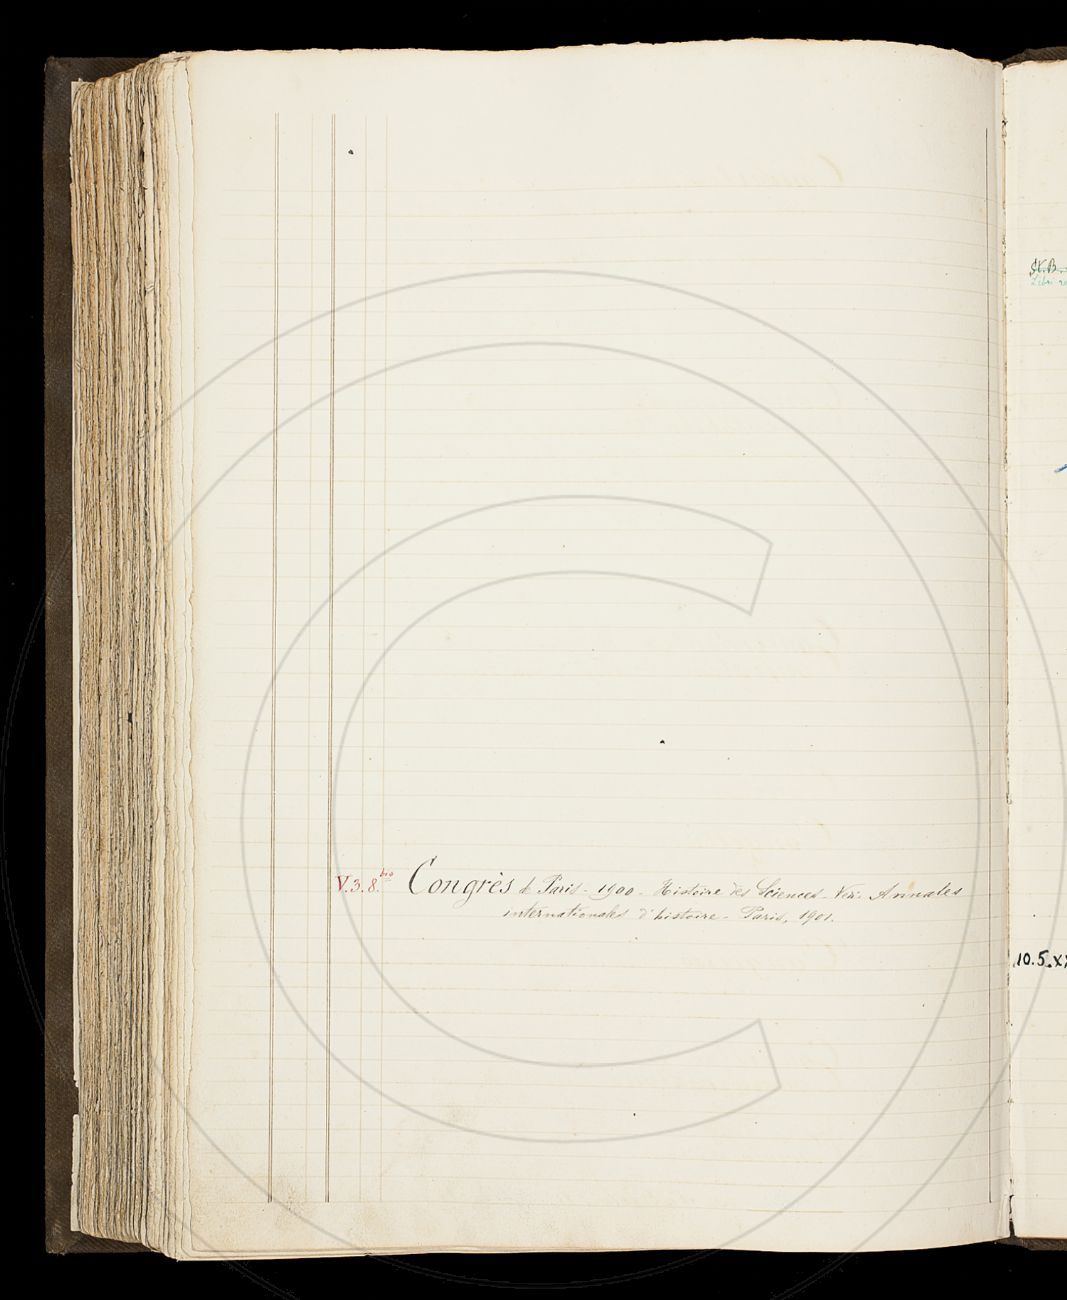 V.3.8.bis Congrès de Paris - 1900 - Histoire des Sciences - Annales
internationales d'histoire - Paris, 1901.
N.B.
10.5.